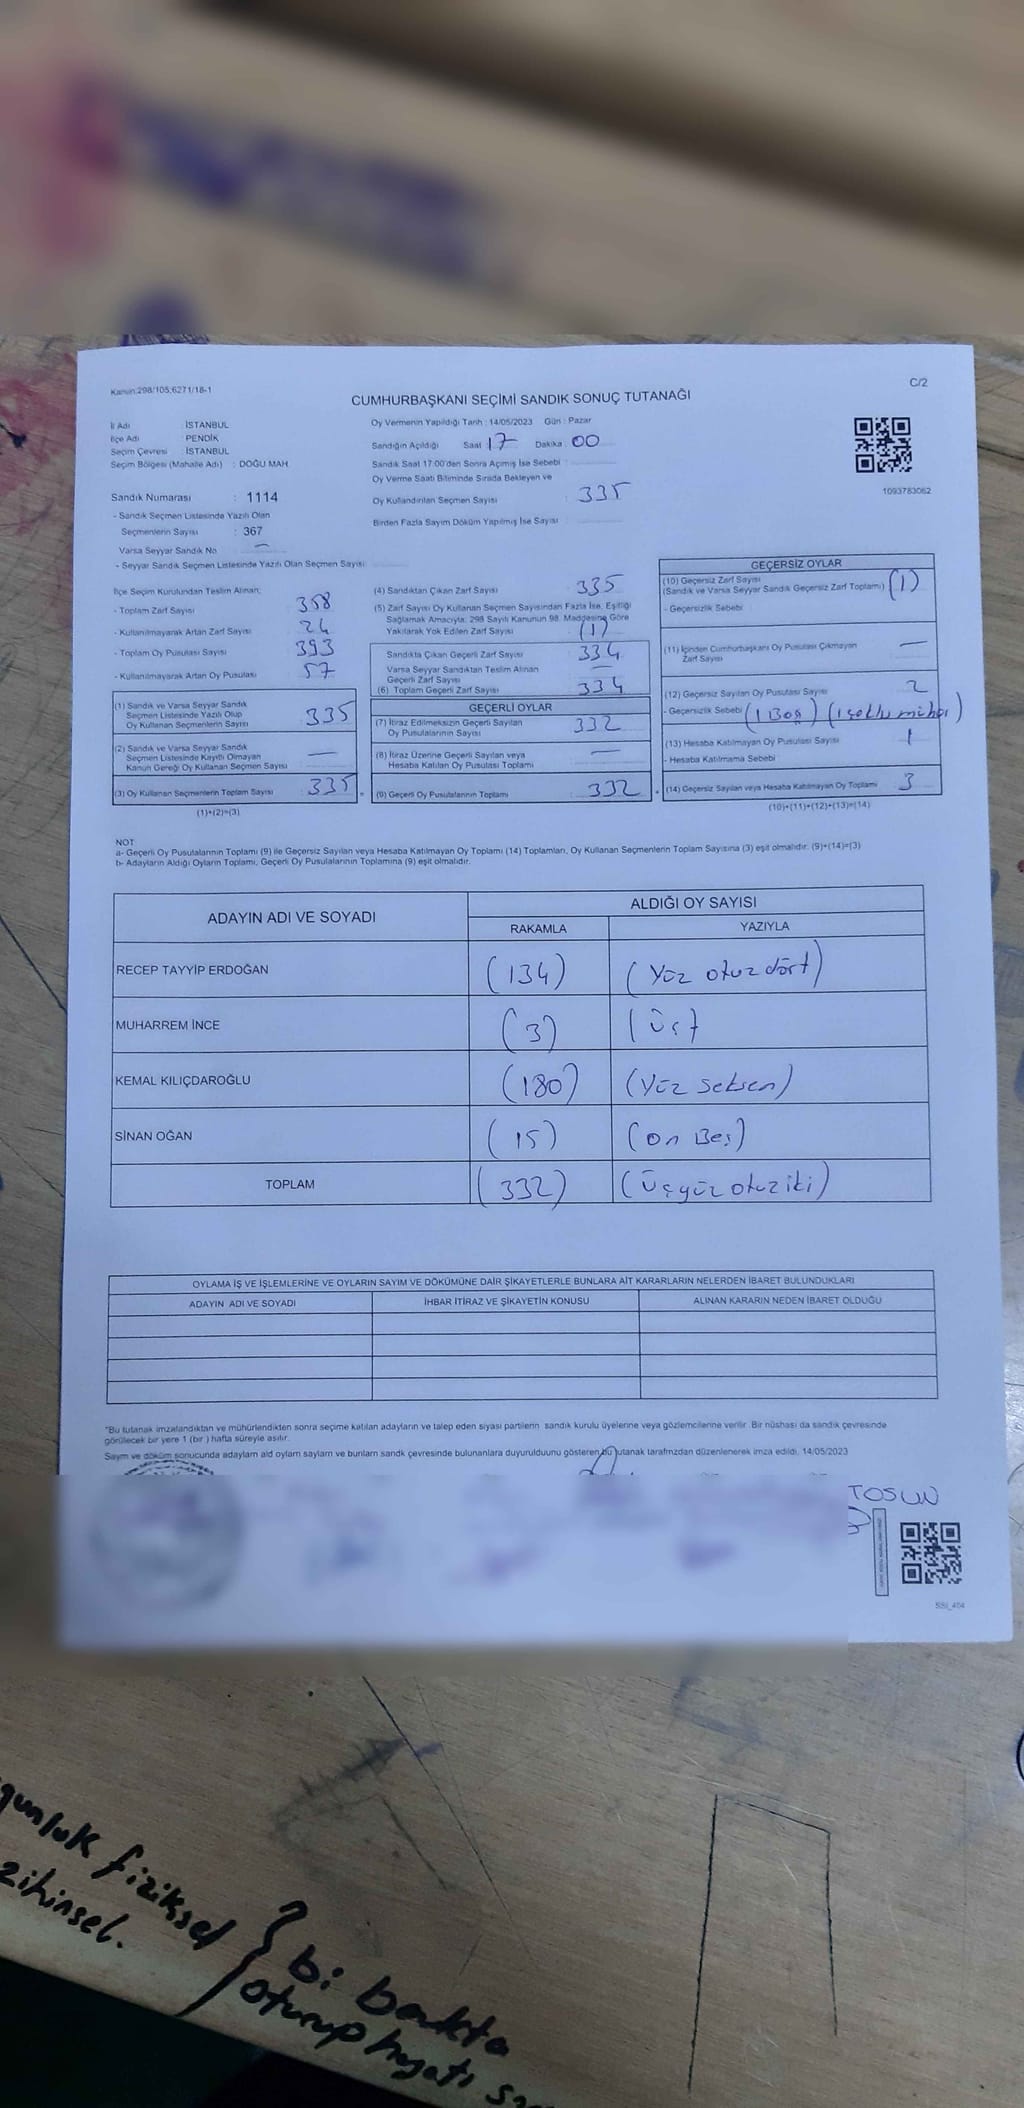 Kanun:298/105;6271/18-1
C/2
CUMHURBAŞKANI SEÇİMİ SANDIK SONUÇ TUTANAĞI
İl Adı : İSTANBUL
İlçe Adı : PENDİK
Seçim Çevresi : İSTANBUL
Seçim Bölgesi (Mahalle Adı) : DOĞU MAH.
Sandık Numarası : 1114
- Sandık Seçmen Listesinde Yazılı Olan
Seçmenlerin Sayısı : 367
Varsa Seyyar Sandık No —
- Seyyar Sandık Seçmen Listesinde Yazılı Olan Seçmen Sayısı
Oy Vermenin Yapıldığı Tarih : 14/05/2023 Gün : Pazar
Sandığın Açıldığı Saat 17 Dakika : 00
Sandık Saat 17:00'den Sonra Açımış İse Sebebi :
Oy Verme Saati Bitiminde Sırada Bekleyen ve
Oy Kullandırılan Seçmen Sayısı : 335
Birden Fazla Sayım Döküm Yapılmış İse Sayısı :
1093783062
İlçe Seçim Kurulundan Teslim Alınan;
- Toplam Zarf Sayısı : 358
- Kullanılmayarak Artan Zarf Sayısı : 24
- Toplam Oy Pusulası Sayısı : 393
- Kullanılmayarak Artan Oy Pusulası : 57
(1) Sandık ve Varsa Seyyar Sandık
Seçmen Listesinde Yazılı Olup
Oy Kullanan Seçmenlerin Sayısı : 335
(2) Sandık ve Varsa Seyyar Sandık
Seçmen Listesinde Kayıtlı Olmayan
Kanun Gereği Oy Kullanan Seçmen Sayısı : —
(3) Oy Kullanan Seçmenlerin Toplam Sayısı : 335
(1)+(2)=(3)
(4) Sandıktan Çıkan Zarf Sayısı : 335
(5) Zarf Sayısı Oy Kullanan Seçmen Sayısından Fazla İse, Eşitliği
Sağlamak Amacıyla; 298 Sayılı Kanunun 98. Maddesine Göre
Yakılarak Yok Edilen Zarf Sayısı : (1)
Sandıkta Çıkan Geçerli Zarf Sayısı : 334
Varsa Seyyar Sandıktan Teslim Alınan
Geçerli Zarf Sayısı : —
(6) Toplam Geçerli Zarf Sayısı : 334
GEÇERLİ OYLAR
(7) İtiraz Edilmeksizin Geçerli Sayılan
Oy Pusulalarının Sayısı : 332
(8) İtiraz Üzerine Geçerli Sayılan veya
Hesaba Katılan Oy Pusulası Toplamı : —
(9) Geçerli Oy Pusulalarının Toplamı : 332
GEÇERSİZ OYLAR
(10) Geçersiz Zarf Sayısı
(Sandık ve Varsa Seyyar Sandık Geçersiz Zarf Toplamı) (1)
- Geçersizlik Sebebi
(11) İçinden Cumhurbaşkanı Oy Pusulası Çıkmayan
Zarf Sayısı —
(12) Geçersiz Sayılan Oy Pusulası Sayısı 2
- Geçersizlik Sebebi (1 Boş)
(13) Hesaba Katılmayan Oy Pusulası Sayısı 1
- Hesaba Katılmama Sebebi
(14) Geçersiz Sayılan veya Hesaba Katılmayan Oy Toplamı : 3
(10)+(11)+(12)+(13)=(14)
NOT
a- Geçerli Oy Pusulalarının Toplamı (9) ile Geçersiz Sayılan veya Hesaba Katılmayan Oy Toplamı (14) Toplamları, Oy Kullanan Seçmenlerin Toplam Sayısına (3) eşit olmalıdır. (9)+(14)=(3)
b- Adayların Aldığı Oyların Toplamı, Geçerli Oy Pusulalarının Toplamına (9) eşit olmalıdır.
ADAYIN ADI VE SOYADI
ALDIĞI OY SAYISI
RAKAMLA YAZIYLA
RECEP TAYYİP ERDOĞAN (134) (Yüz otuz dört)
MUHARREM İNCE (3) (Üç)
KEMAL KILIÇDAROĞLU (180) (Yüz seksen)
SİNAN OĞAN (15) (On Beş)
TOPLAM (332) (Üçyüz otuz iki)
OYLAMA İŞ VE İŞLEMLERİNE VE OYLARIN SAYIM VE DÖKÜMÜNE DAİR ŞİKAYETLERLE BUNLARA AİT KARARLARIN NELERDEN İBARET BULUNDUKLARI
ADAYIN ADI VE SOYADI İHBAR İTİRAZ VE ŞİKAYETİN KONUSU ALINAN KARARIN NEDEN İBARET OLDUĞU
*Bu tutanak imzalandıktan ve mühürlendikten sonra seçime katılan adayların ve talep eden siyasi partilerin sandık kurulu üyelerine veya gözlemcilerine verilir. Bir nüshası da sandık çevresinde
görülecek bir yere 1 (bir ) hafta süreyle asılır.
Saym ve döküm sonucunda adaylarn ald oylarn saylarn ve bunlarn sandk çevresinde bulunanlara duyurulduunu gösteren bu tutanak tarafmzdan düzenlenerek imza edildi. 14/05/2023
TOSUN
SSI_404
gunluk fiziksel
zihinsel.
bi bankta
oturup hayatı